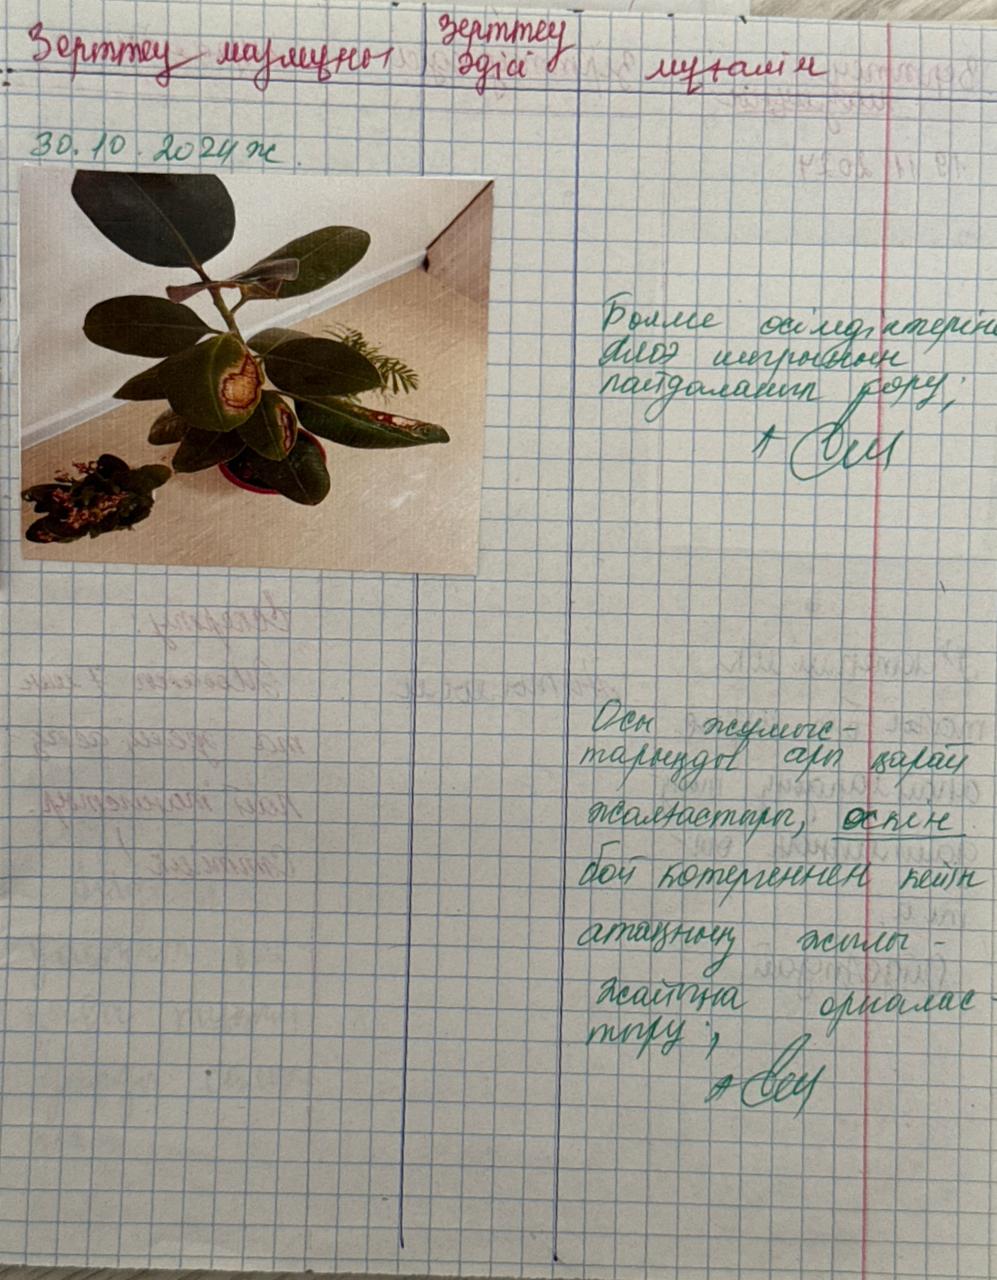 Зерттеу мазмұны
Зерттеу
әдісі
мұғалім
30.10.2024ж.
Бөлме өсімдіктерін
алоэ шырынын
пайдаланып қорғау;
Осы жұмыс-
тарыңды әрі қарай
жалғастыры, өскін
бой көтергеннен кейін
атаңның жылы-
жайына орналас-
тыру;